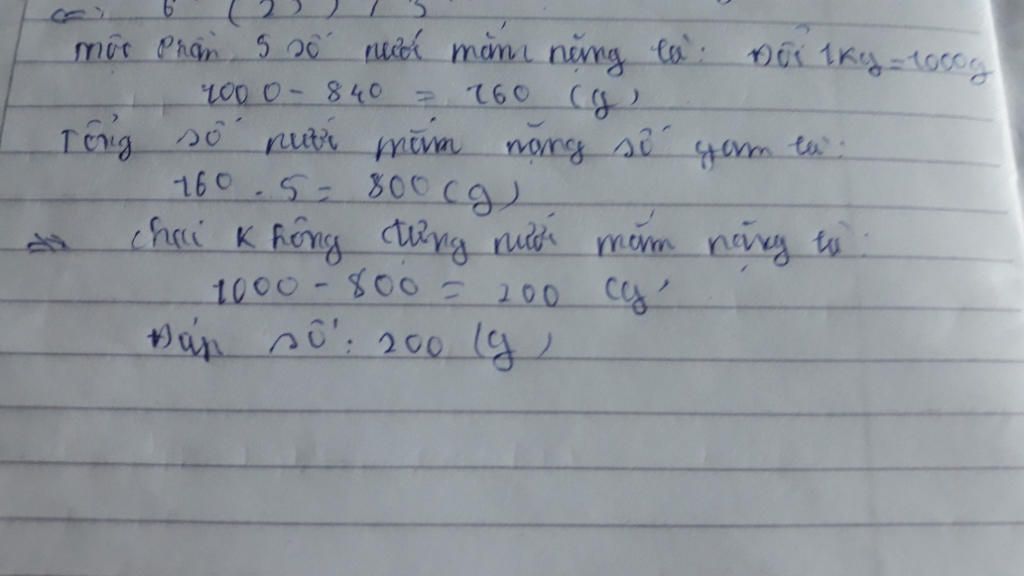 một phần 5 số nước mắm nặng là: Đổi 1kg = 1000g
1000 - 840 = 160 (g)
Tổng số nước mắm nặng số gam là:
160 . 5 = 800 (g)
=> Chai không đựng nước mắm nặng là:
1000 - 800 = 200 (g)
Đáp số: 200 (g)